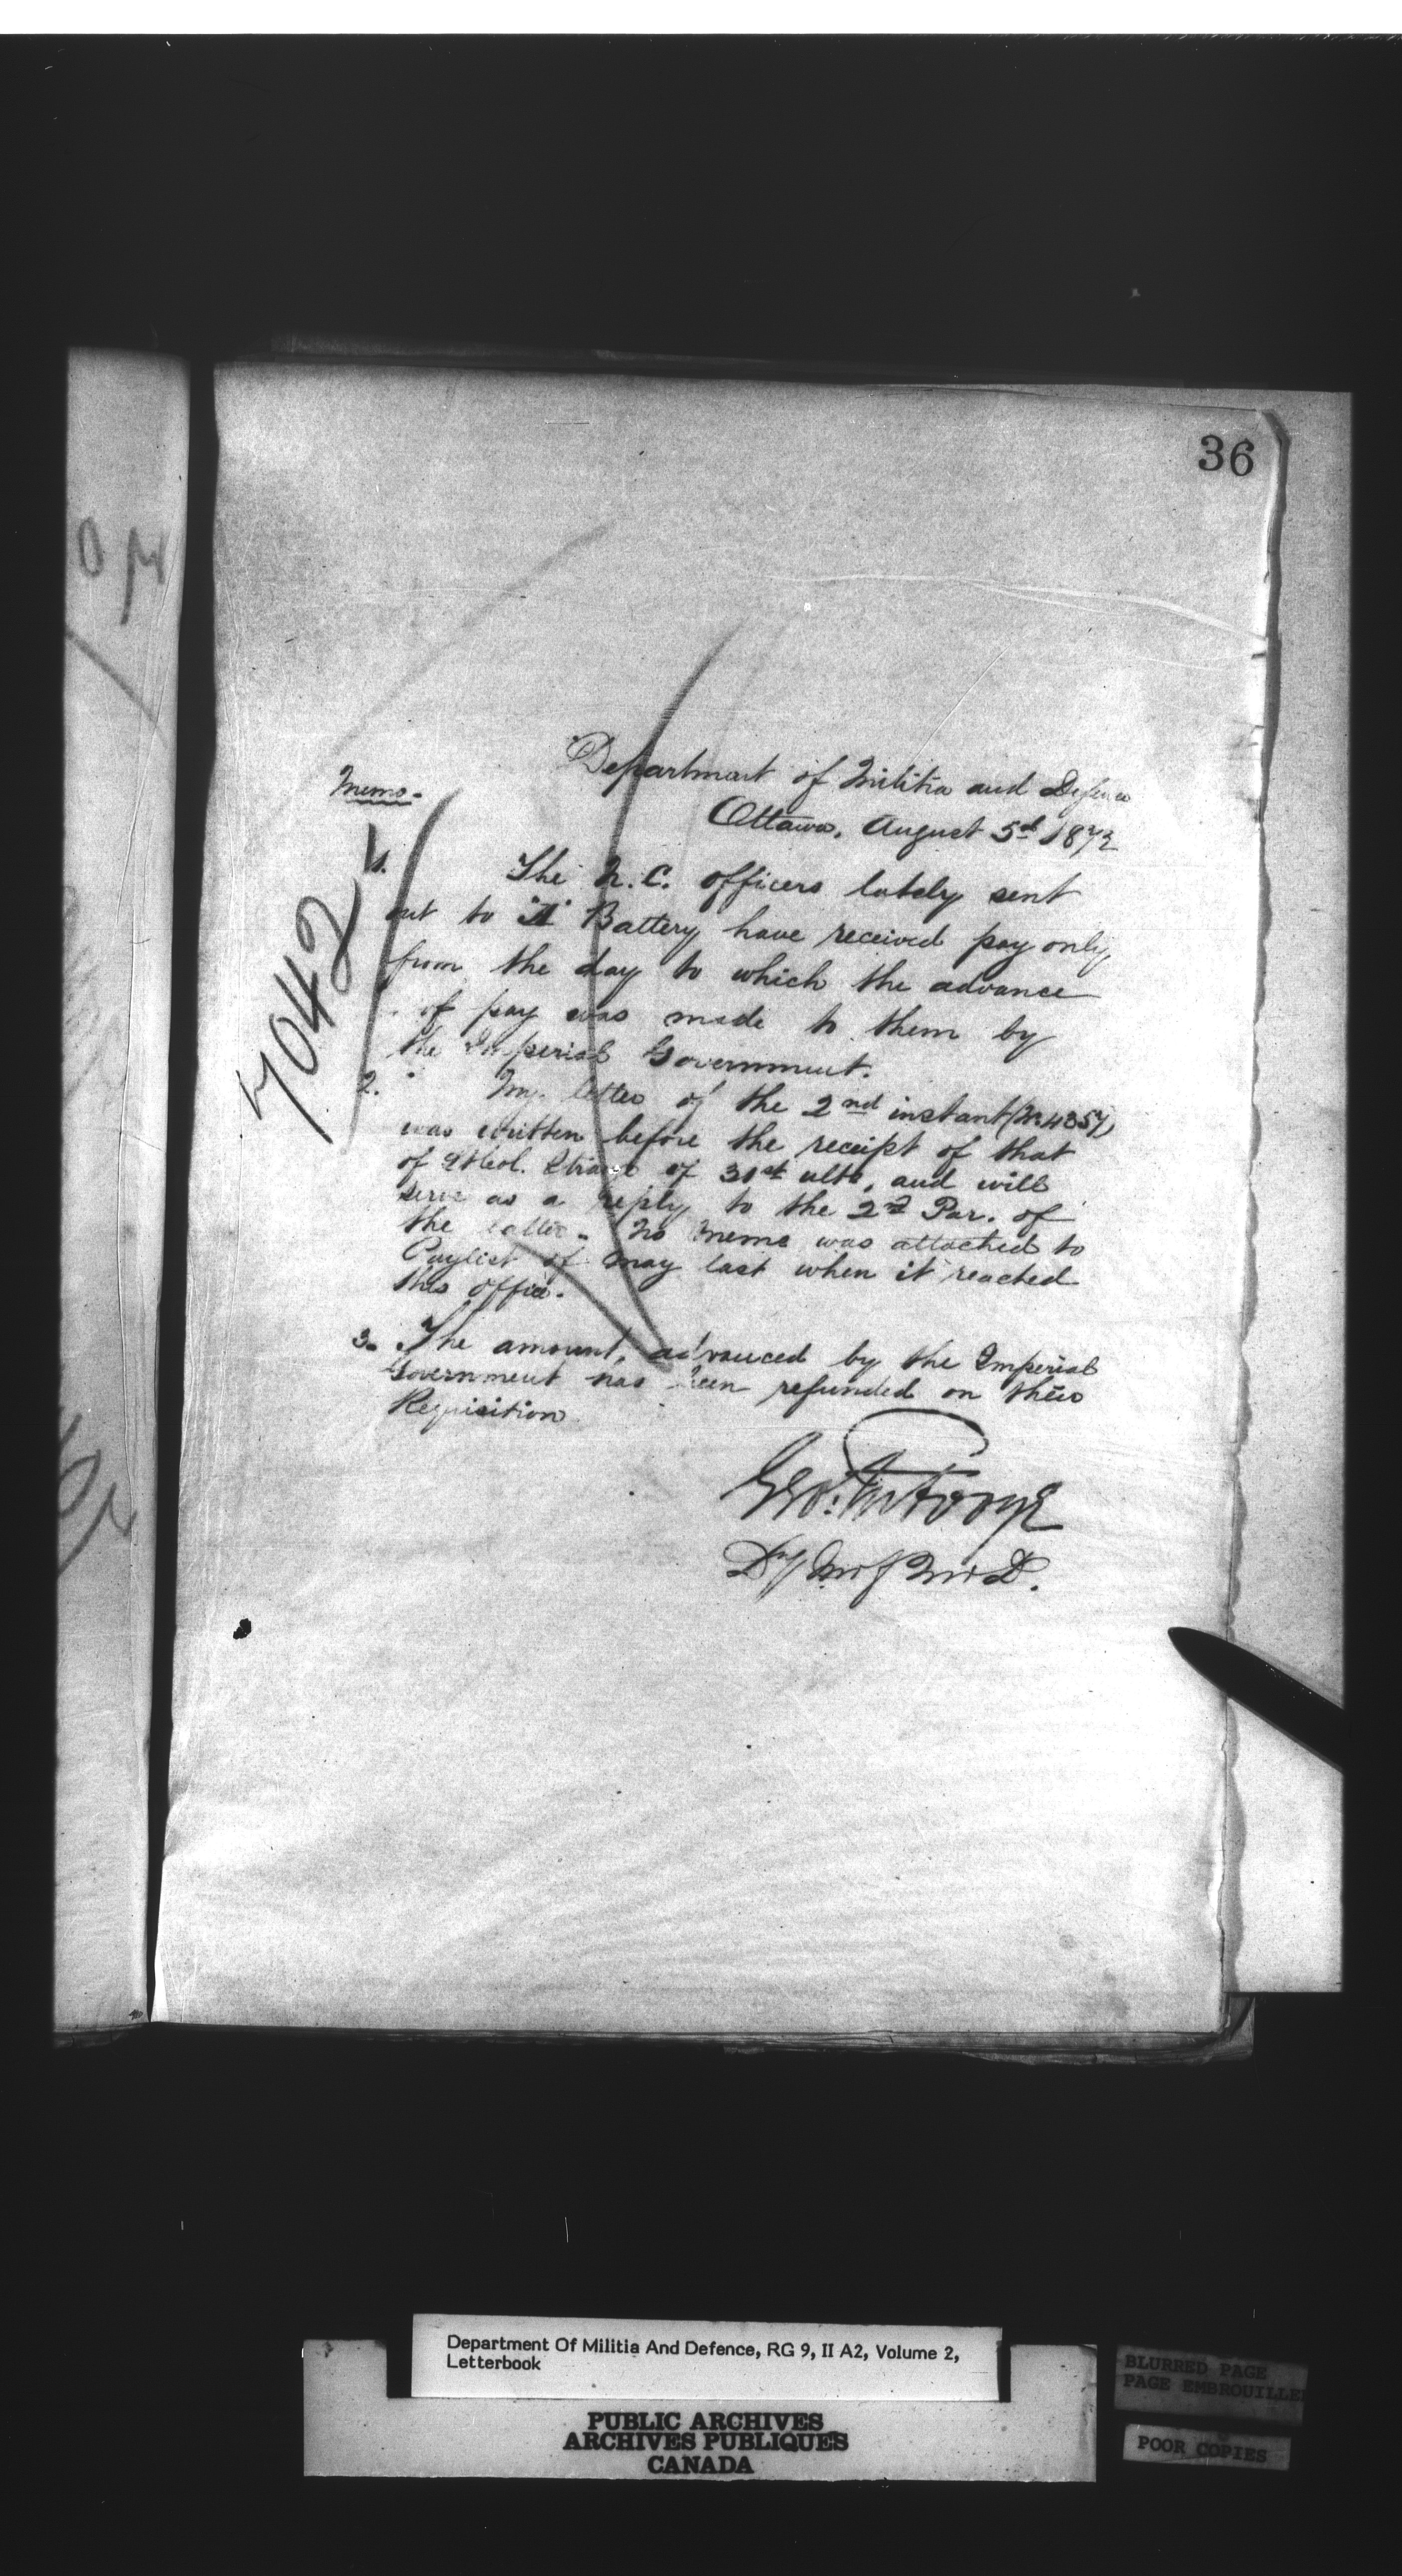 36
Department of Militia and Defence
Memo.
Ottawa, August 5th 1872
7042
1. The N.C. officers lately sent
out to "A" Battery have received pay only
from the day to which the advance
of pay was made to them by
the Imperial Government.
2. My letter of the 2nd instant (No 4357)
was written before the receipt of that
of Lt Col. Strange of 31st ulto, and will
serve as a reply to the 2nd Par. of
the latter. No memo was attached to
Paylist of May last when it reached
this office.
3. The amount, advanced by the Imperial
Government has been refunded on their
Requisition
Geo: Futvoye
Dy M of M & D.
Department Of Militia And Defence, RG 9, II A2, Volume 2,
Letterbook
PUBLIC ARCHIVES
ARCHIVES PUBLIQUES
CANADA
BLURRED PAGE
PAGE EMBROUILLEE
POOR COPIES